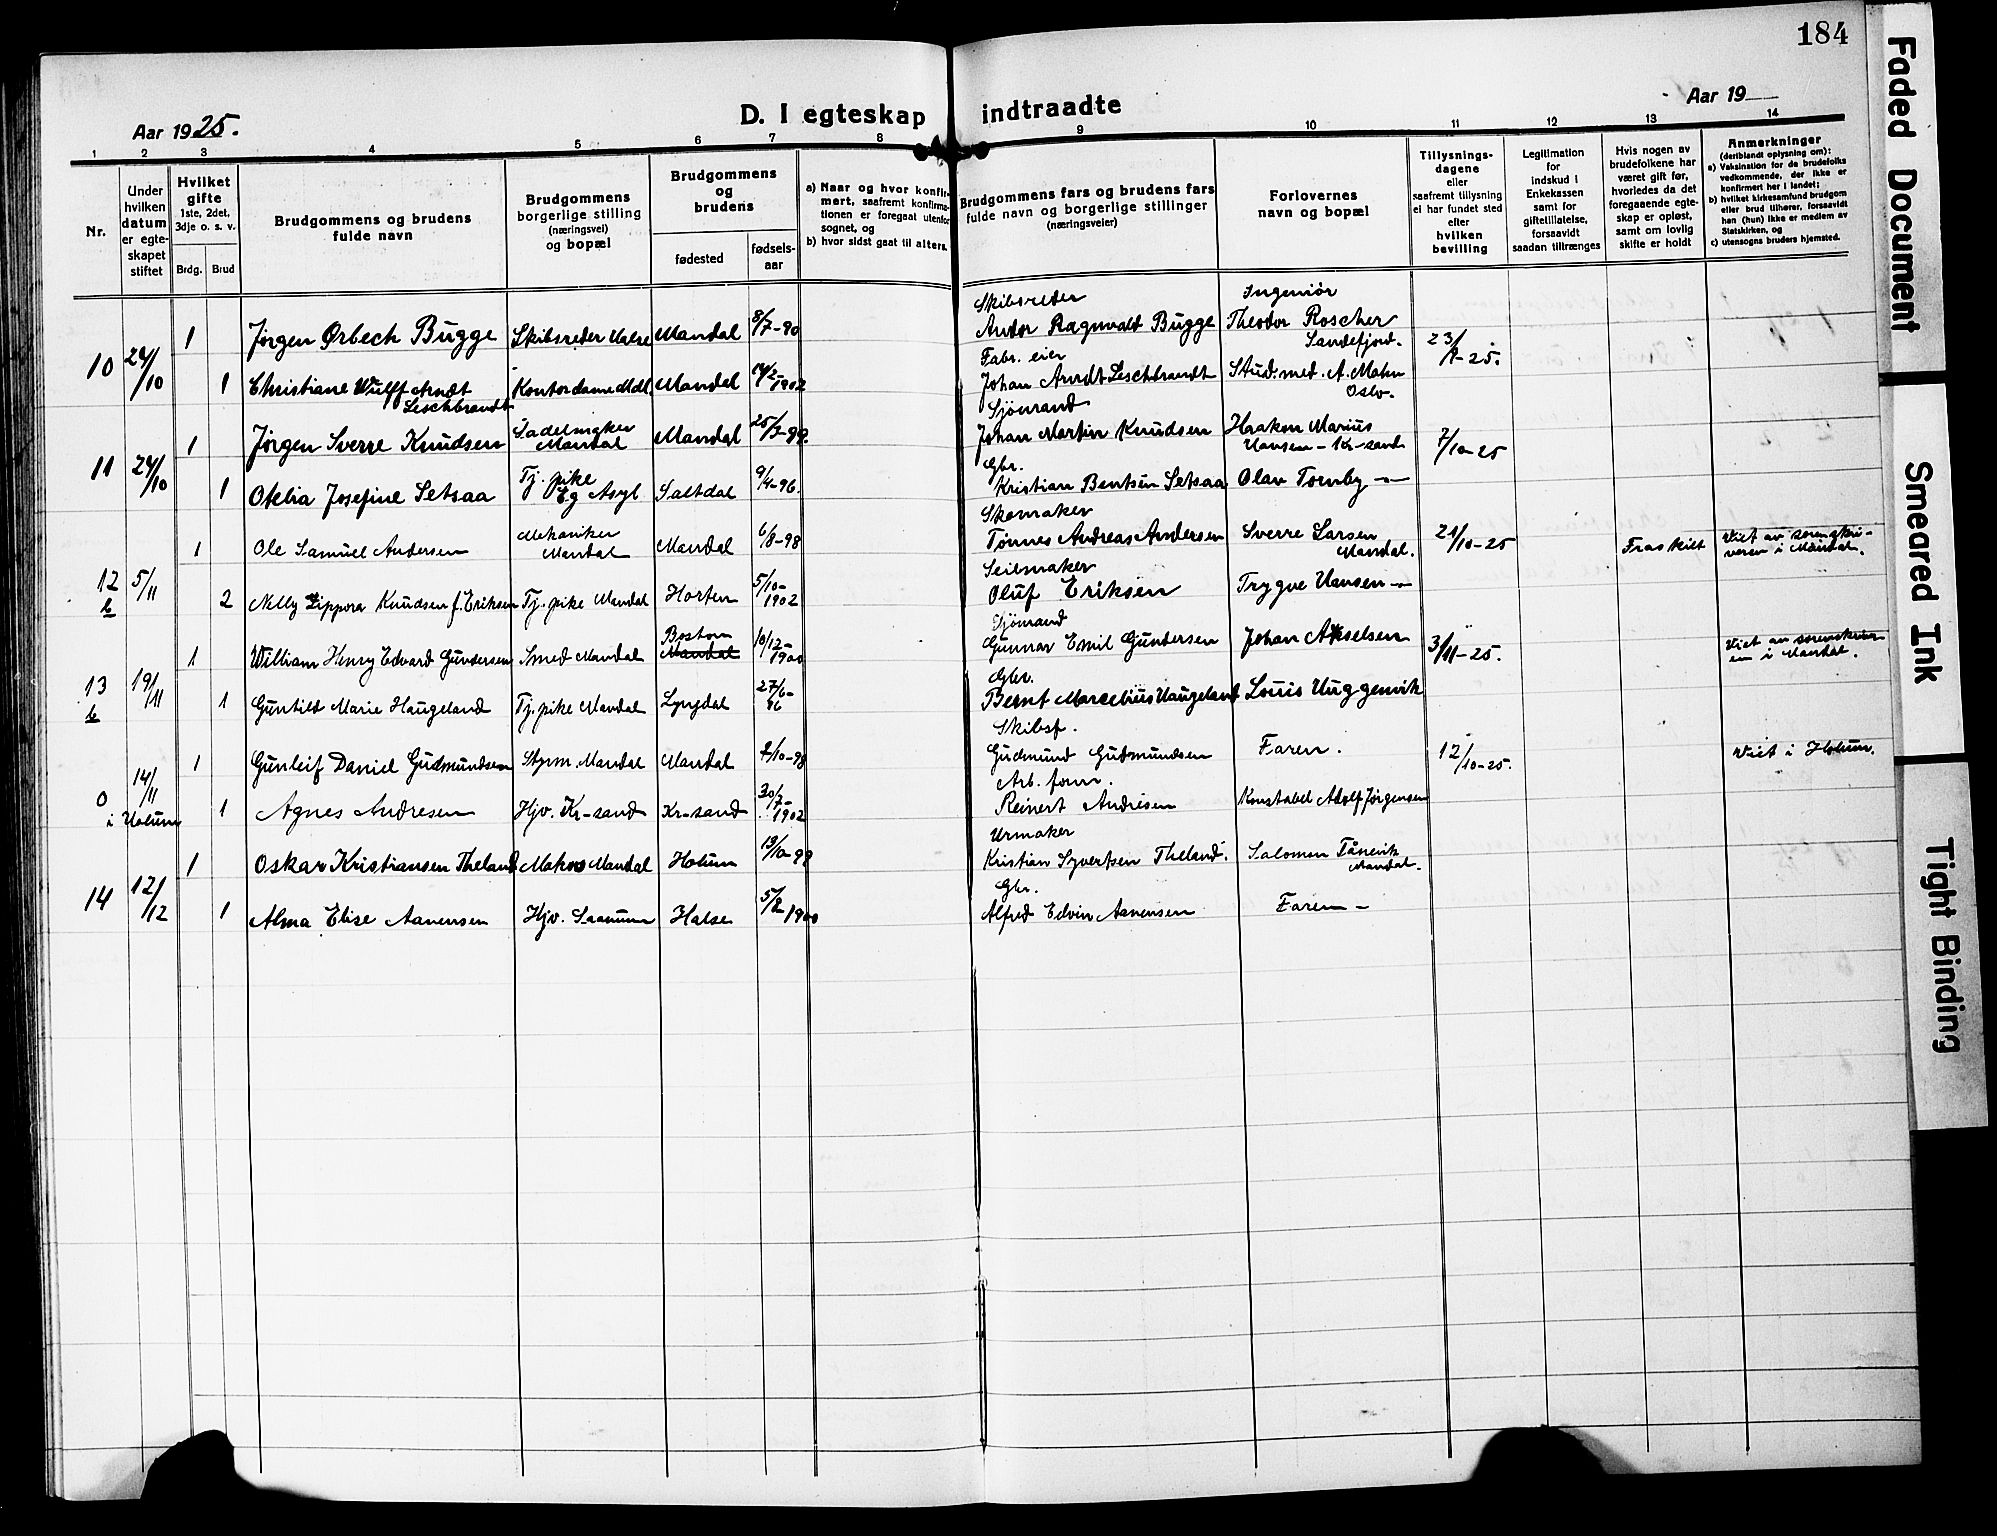 184
Aar 1925.
D. I egteskap indtraadte
Aar 19
1 2 3 4 5 6 7 8 9 10 11 12 13 14
Nr.
Under hvilken datum er egteskapet stiftet
Hvilket gifte 1ste, 2det, 3dje o. s. v.
Brdg. Brud
Brudgommens og brudens fulde navn
Brudgommens borgerlige stilling (næringsvei) og bopæl
Brudgommens og brudens
fødested
fødsels-aar
a) Naar og hvor konfirmert, saafremt konfirmationen er foregaat utenfor sognet, og
b) hvor sidst gaat til alters.
Brudgommens fars og brudens fars fulde navn og borgerlige stillinger (næringsveier)
Forlovernes navn og bopæl
Tillysnings-dagene eller saafremt tillysning ei har fundet sted efter hvilken bevilling
Legitimation for indskud i Enkekassen samt for giftetillatelse, forsaavidt saadan tiltrænges
Hvis nogen av brudefolkene har været gift før, hvorledes da det foregaaende egteskap er opløst, samt om lovlig skifte er holdt
Anmerkninger (deriblandt oplysning om):
a) Vaksination for de brudefolks vedkommende, der ikke er konfirmert her i landet;
b) hvilket kirkesamfund brudgom eller brud tilhører, forsaavidt han (hun) ikke er medlem av Statskirken, og
c) utensogns bruders hjemsted.
10 24/10
1 Jørgen Ørbech Bugge Skibsreder Mandal 8/7-90 Skibsreder Andor Ragnvald Bugge Ingeniør Theodor Roscher Sandefjord.
1 Christiane Wulff Arndt Leschbrandt Kontordame Mdl. Mandal 1902 Fabr. eier Johan Arndt Leschbrandt Stud. med. A. Oslo.
11 24/10
1 Jørgen Sverre Knudsen Sadelmaker Mandal Mandal Sjömand Johan Martin Knudsen Haakon Marius Hansen - Kr-sand 7/10-25
1 Otelia Josefine Setsaa Tj. pike Eg Asyl Saltdal 9/4-96. Gbr. Kristian Bentsen Setsaa Olav Tornby -"-
12 b 5/11
1 Ole Samuel Andersen Mekaniker Mandal Mandal 6/8-98 Skomaker Tønnes Andreas Andersen Sverre Larsen Mandal. 21/10-25 Fraskilt Viet av sorenskriveren i Mandal.
2 Nelly Zippora Knudsen f. Eriksen Tj. pike Mandal Horten 5/10-1902 Seilmaker Oluf Eriksen Trygve Hansen -"-
13 b 19/11
1 William Henry Edvard Gundersen Smed Mandal Boston Mandal 10/12-1900 Sjömand Gunnar Emil Gundersen Johan Akselsen 3/11-25. Viet av sorenskriveren i Mandal.
1 Guntild Marie Haugeland Tj. pike Mandal Lyngdal 27/6-86 Gbr. Bernt Marcelius Haugeland Louis Uggenvik
0 14/11 i Holum
1 Gunleif Daniel Gudmundsen Styrm. Mandal Mandal 2/10-98 Skibsf. Gudmund Gudmundsen Faren. 12/10-25. Viet i Holum.
1 Agnes Andresen Hjv. Kr-sand Kr-sand 30/7-1902 Arb. form. Reinert Andresen Konstabel Adolf Jørgensen
14 12/12
1 Oskar Kristiansen Theland Mandal Holum Urmaker Kristian Syvertsen Theland. Salomon Tånevik Mandal.
1 Alma Elise Aanensen Hjv. Saanum Halse 1900 Gbr. Alfred Edvin Aanensen Faren -
Faded Document
Smeared Ink
Tight Binding